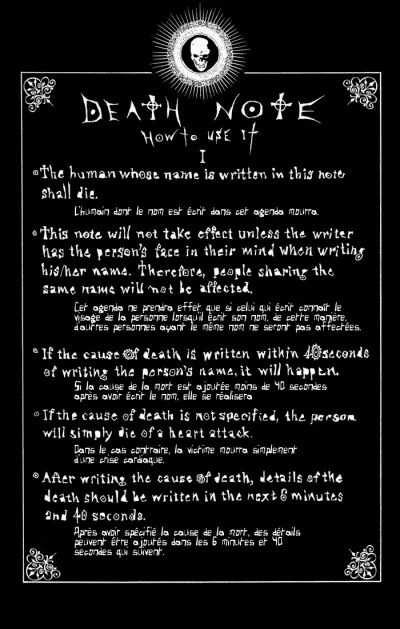 DEATH NOTE
How to use it
I
The human whose name is written in this note
shall die.
L'humain dont le nom est écrit dans cet agenda mourra.
This note will not take effect unless the writer
has the person's face in their mind when writing
his/her name. Therefore, people sharing the
same name will not be affected.
Cet agenda ne prendra effet que si celui qui écrit connaît le
visage de la personne lorsqu'il écrit son nom, de cette manière,
d'autres personnes ayant le même nom ne seront pas affectées.
If the cause of death is written within 40 seconds
of writing the person's name, it will happen.
Si la cause de la mort est ajoutée moins de 40 secondes
après avoir écrit le nom, elle se réalisera
If the cause of death is not specified, the person
will simply die of a heart attack.
Dans le cas contraire, la victime mourra simplement
d'une crise cardiaque.
After writing the cause of death, details of the
death should be written in the next 6 minutes
and 40 seconds.
Après avoir spécifié la cause de la mort, des détails
peuvent être ajoutés dans les 6 minutes et 40
secondes qui suivent.